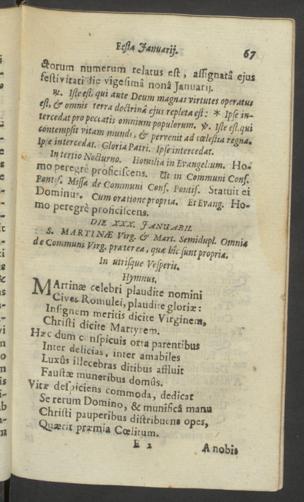 Festa Januarij. 67
ctorum numerum relatus est, assignatâ ejus
festivitati die vigesimâ nonâ Januarij.
℟. Iste est qui ante Deum magnas virtutes operatus
est, & omnis terra doctrinâ ejus repleta est: * Ipse in-
tercedat pro peccatis omnium populorum. ℣. Iste est qui
contempsit vitam mundi, & pervenit ad cœlestia regna.
Ipse intercedat. Gloria Patri. Ipse intercedat.
In tertio Nocturno. Homilia in Evangelium. Ho-
mo peregrè proficiscens. Ut in Communi Conf.
Pontif. Missa de Communi Conf. Pontif. Statuit ei
Dominus. Cum oratione propria. Et Evang. Ho-
mo peregrè proficiscens.
DIE XXX. JANUARII.
S. MARTINÆ Virg. & Mart. Semidupl. Omnia
de Communi Virg. præterea, quæ hîc sunt propria.
In utrisque Vesperis.
Hymnus.
MArtinæ celebri plaudite nomini
Cives Romulei, plaudite gloriæ:
Insignem meritis dicite Virginem,
Christi dicite Martyrem.
Hæc dum conspicuis orta parentibus
Inter delicias, inter amabiles
Luxûs illecebras ditibus affluit
Faustæ muneribus domûs.
Vitæ despiciens commoda, dedicat
Se rerum Domino, & munificâ manu
Christi pauperibus distribuens opes,
Quærit præmia Cœlitum.
E 2 A nobis